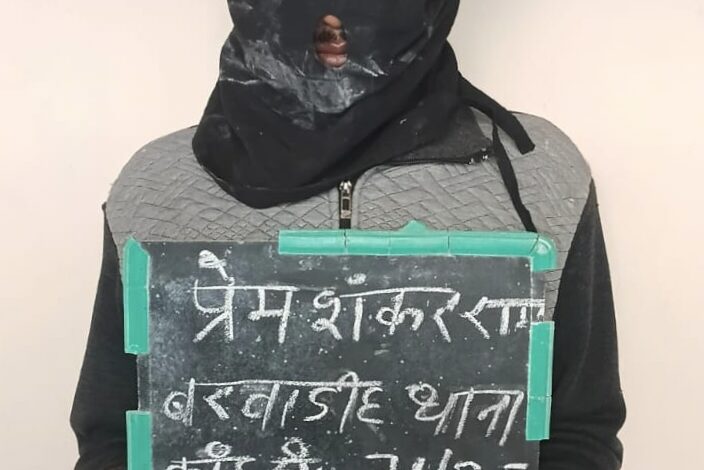 प्रेम शंकर राम
बरवाडीह थाना